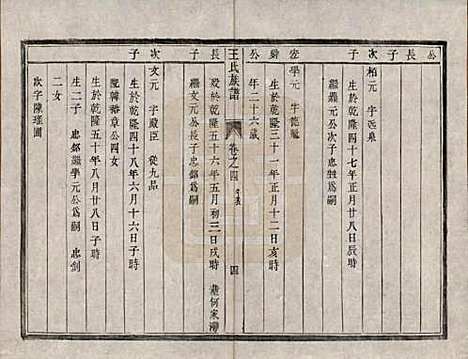 公長子
次子
栢元 字丞泉
生於乾隆四十七年正月廿八日辰時
繼鼎元公次子忠
爲嗣
學元 字
生於乾隆三十一年正月十二日亥時
公年二十六歲
王氏族譜
卷之四
四
歿於乾隆五十六年五月初三日戌時 葬何家
繼文元公長子忠鄒爲嗣
長子
次子
文元 字殿臣 從九品
生於乾隆四十八年六月十六日子時
配韓 章公四女
生於乾隆五十年八月廿八日子時
生二子 忠鄒繼學元公爲嗣 忠劍
二女
次字陳瑾圃